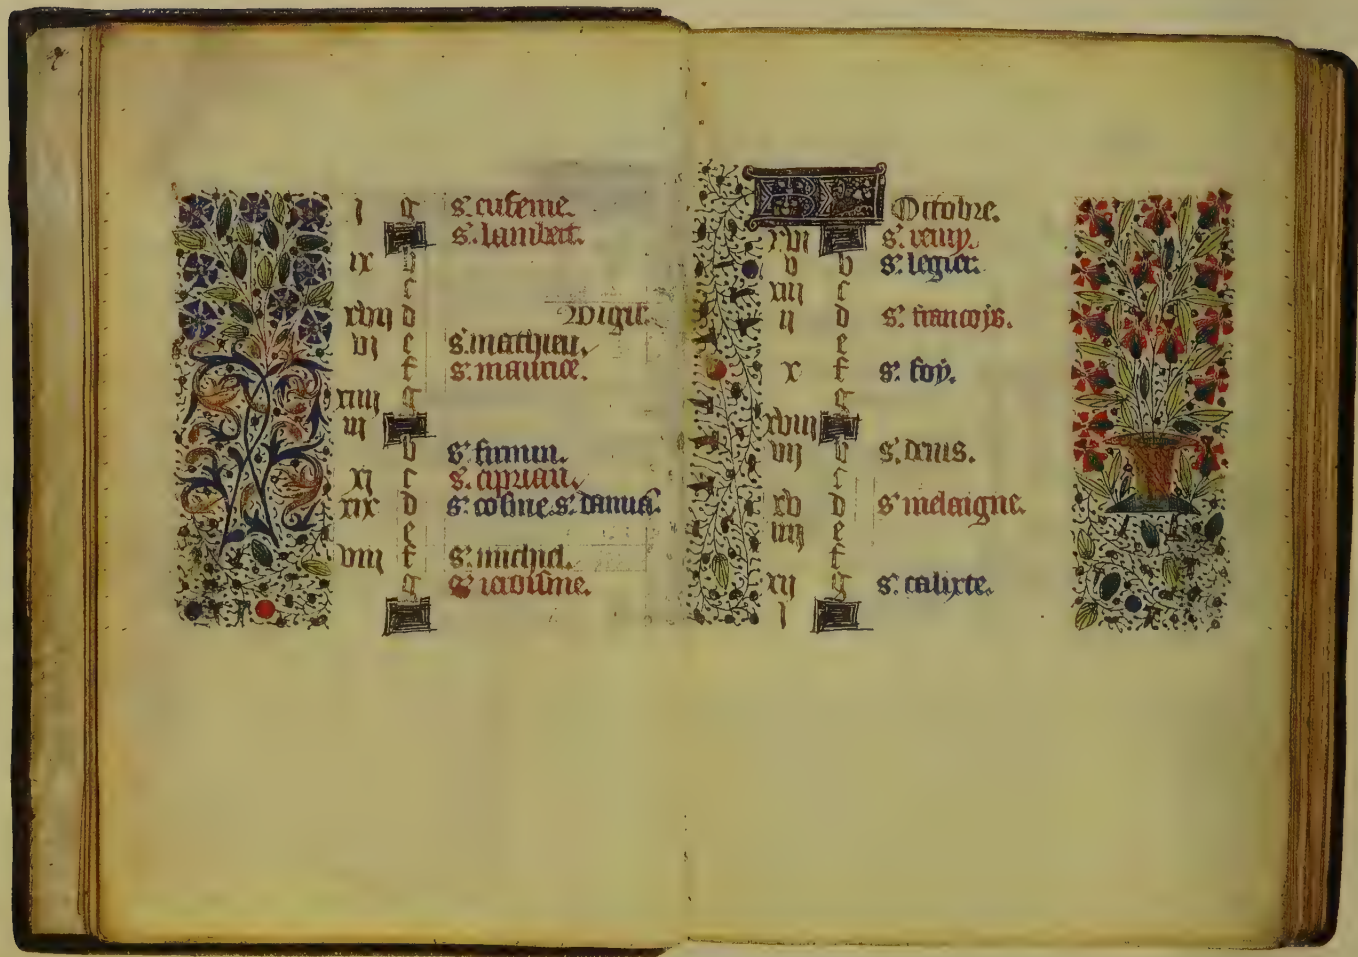 j g s. eufemie.
s. lambert.
ix b
c
xvij d Vigil.
vj e s. mathieu.
f s. maurice.
xiiij g
iij
b s. firmin.
xj c s. ciprian.
xix d s. cosme. s. damiā.
e
viij f s. michiel.
g s. ieroisme.
Octobre.
xvj s. remy.
v b s. legier.
xiij c
ij d s. francoys.
e
x f s. foy.
g
xviij
vij b s. denis.
c
xv d s. melaigne.
iiij e
f
xij g s. calixte.
j